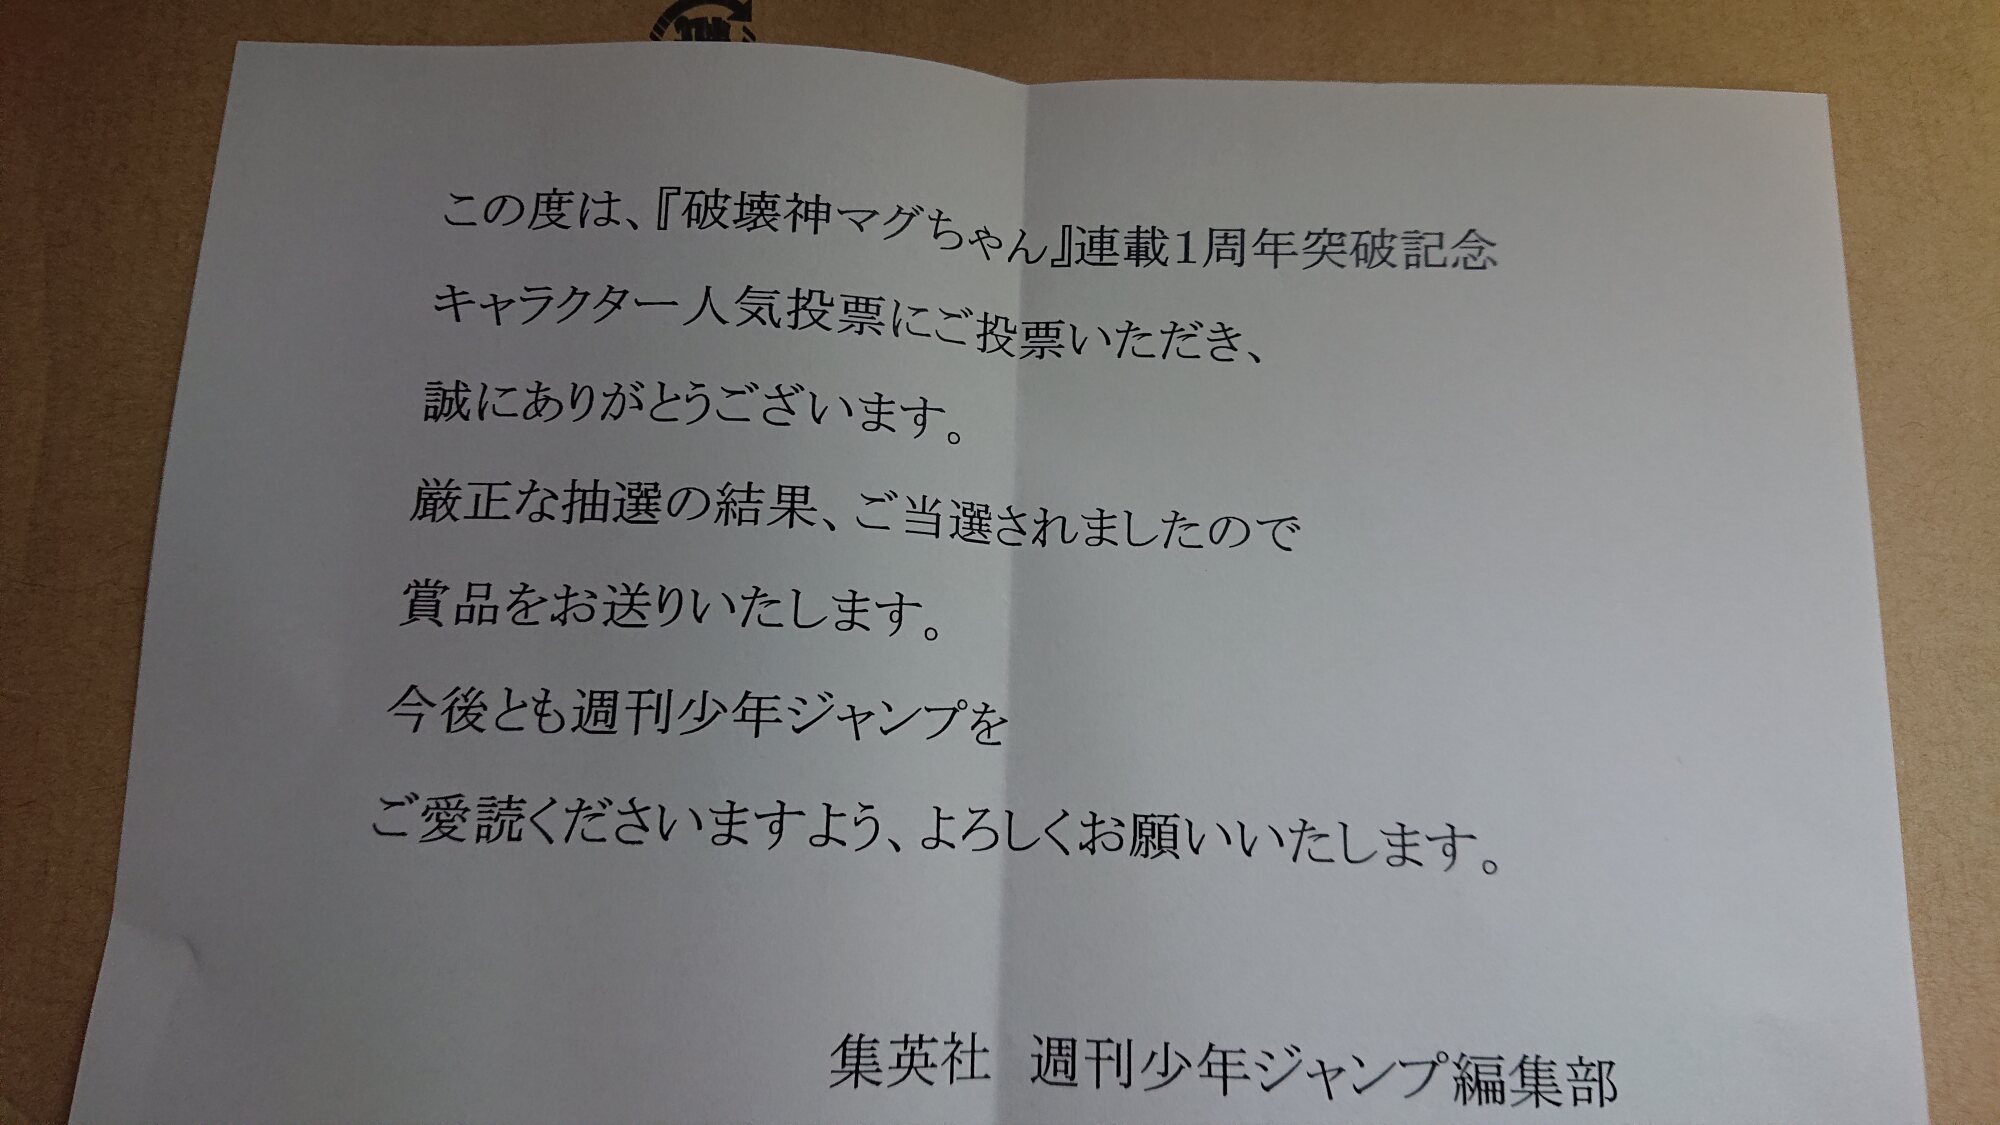 この度は、『破壊神マグちゃん』連載1周年突破記念
キャラクター人気投票にご投票いただき、
誠にありがとうございます。
厳正な抽選の結果、ご当選されましたので
賞品をお送りいたします。
今後とも週刊少年ジャンプを
ご愛読くださいますよう、よろしくお願いいたします。
集英社　週刊少年ジャンプ編集部